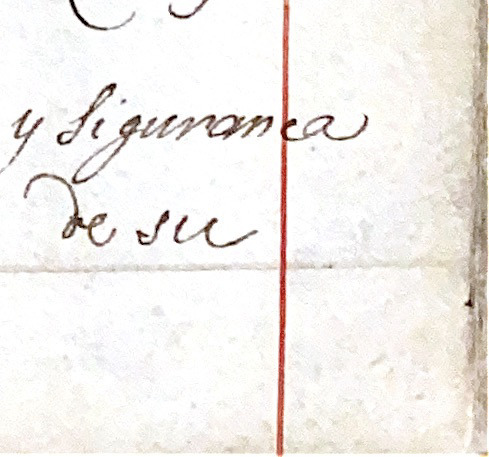 y Siguranca
de su